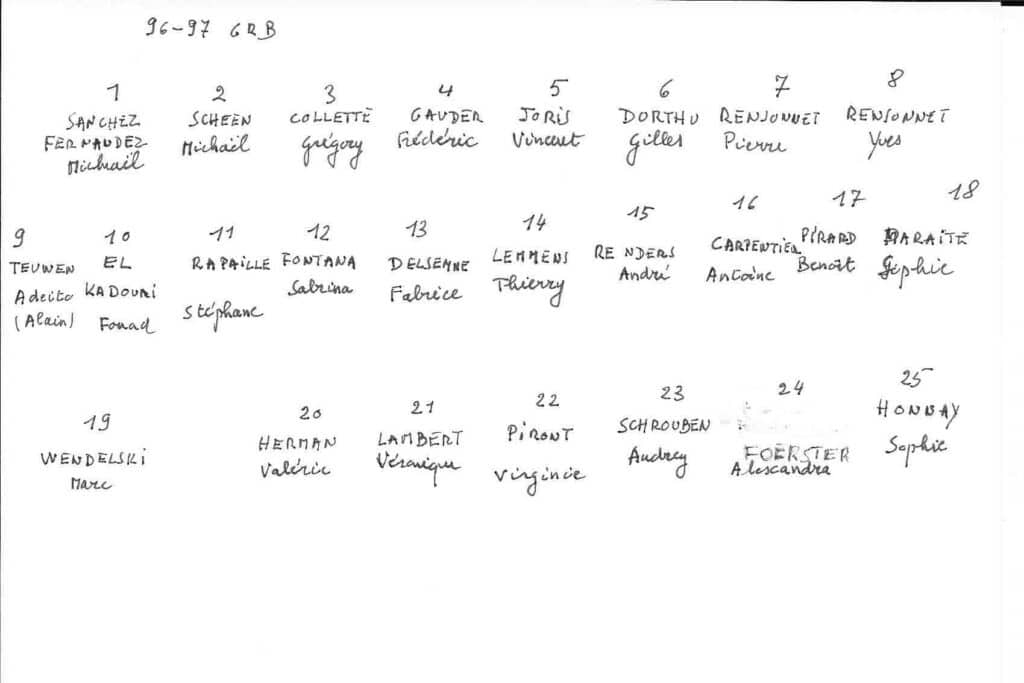 96-97 GRB
1 2 3 4 5 6 7 8
SANCHEZ SCHEEN COLLETTE GAUDER JORIS DORTHU RENSONNET RENSONNET
FERNANDEZ Michaël Grégory Frédéric Vincent Gilles Pierre Yves
Michaël
9 10 11 12 13 14 15 16 17 18
TEUWEN EL RAPAILLE FONTANA DELSEMME LEMMENS RENDERS CARPENTIER PIRARD MARAITE
Adecito KADOURI Stéphane Sabrina Fabrice Thierry André Antoine Benoît Sophie
(Alain) Fouad
19 20 21 22 23 24 25
WENDELSKI HERMAN LAMBERT PIRONT SCHROUBEN FOERSTER HONNAY
Marc Valérie Véronique Virginie Audrey Alexandra Sophie